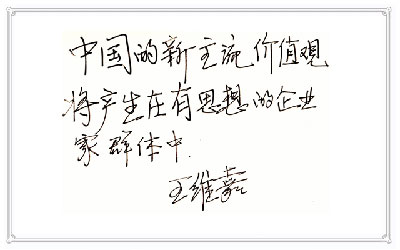 中国的新主流价值观
将产生在有思想的企业
家群体中.
王维嘉